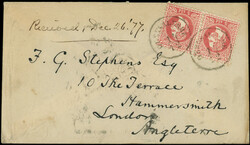 Received, Dec 26. '77.
F. G. Stephens Esq
10 The Terrace
Hammersmith
London
Angleterre